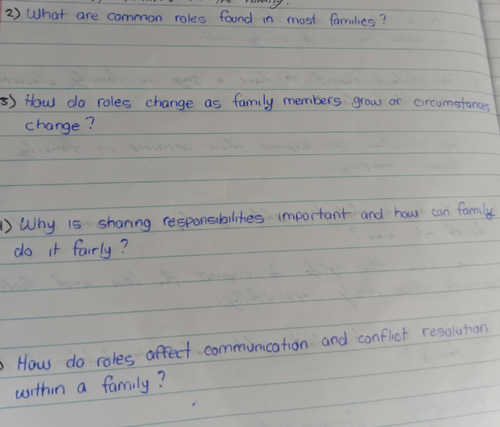 the family.
2) What are common roles found in most families?
3) How do roles change as family members grow or circumstances
change?
) Why is sharing responsibilities important and how can family
do it fairly?
How do roles affect communication and conflict resolution
within a family?